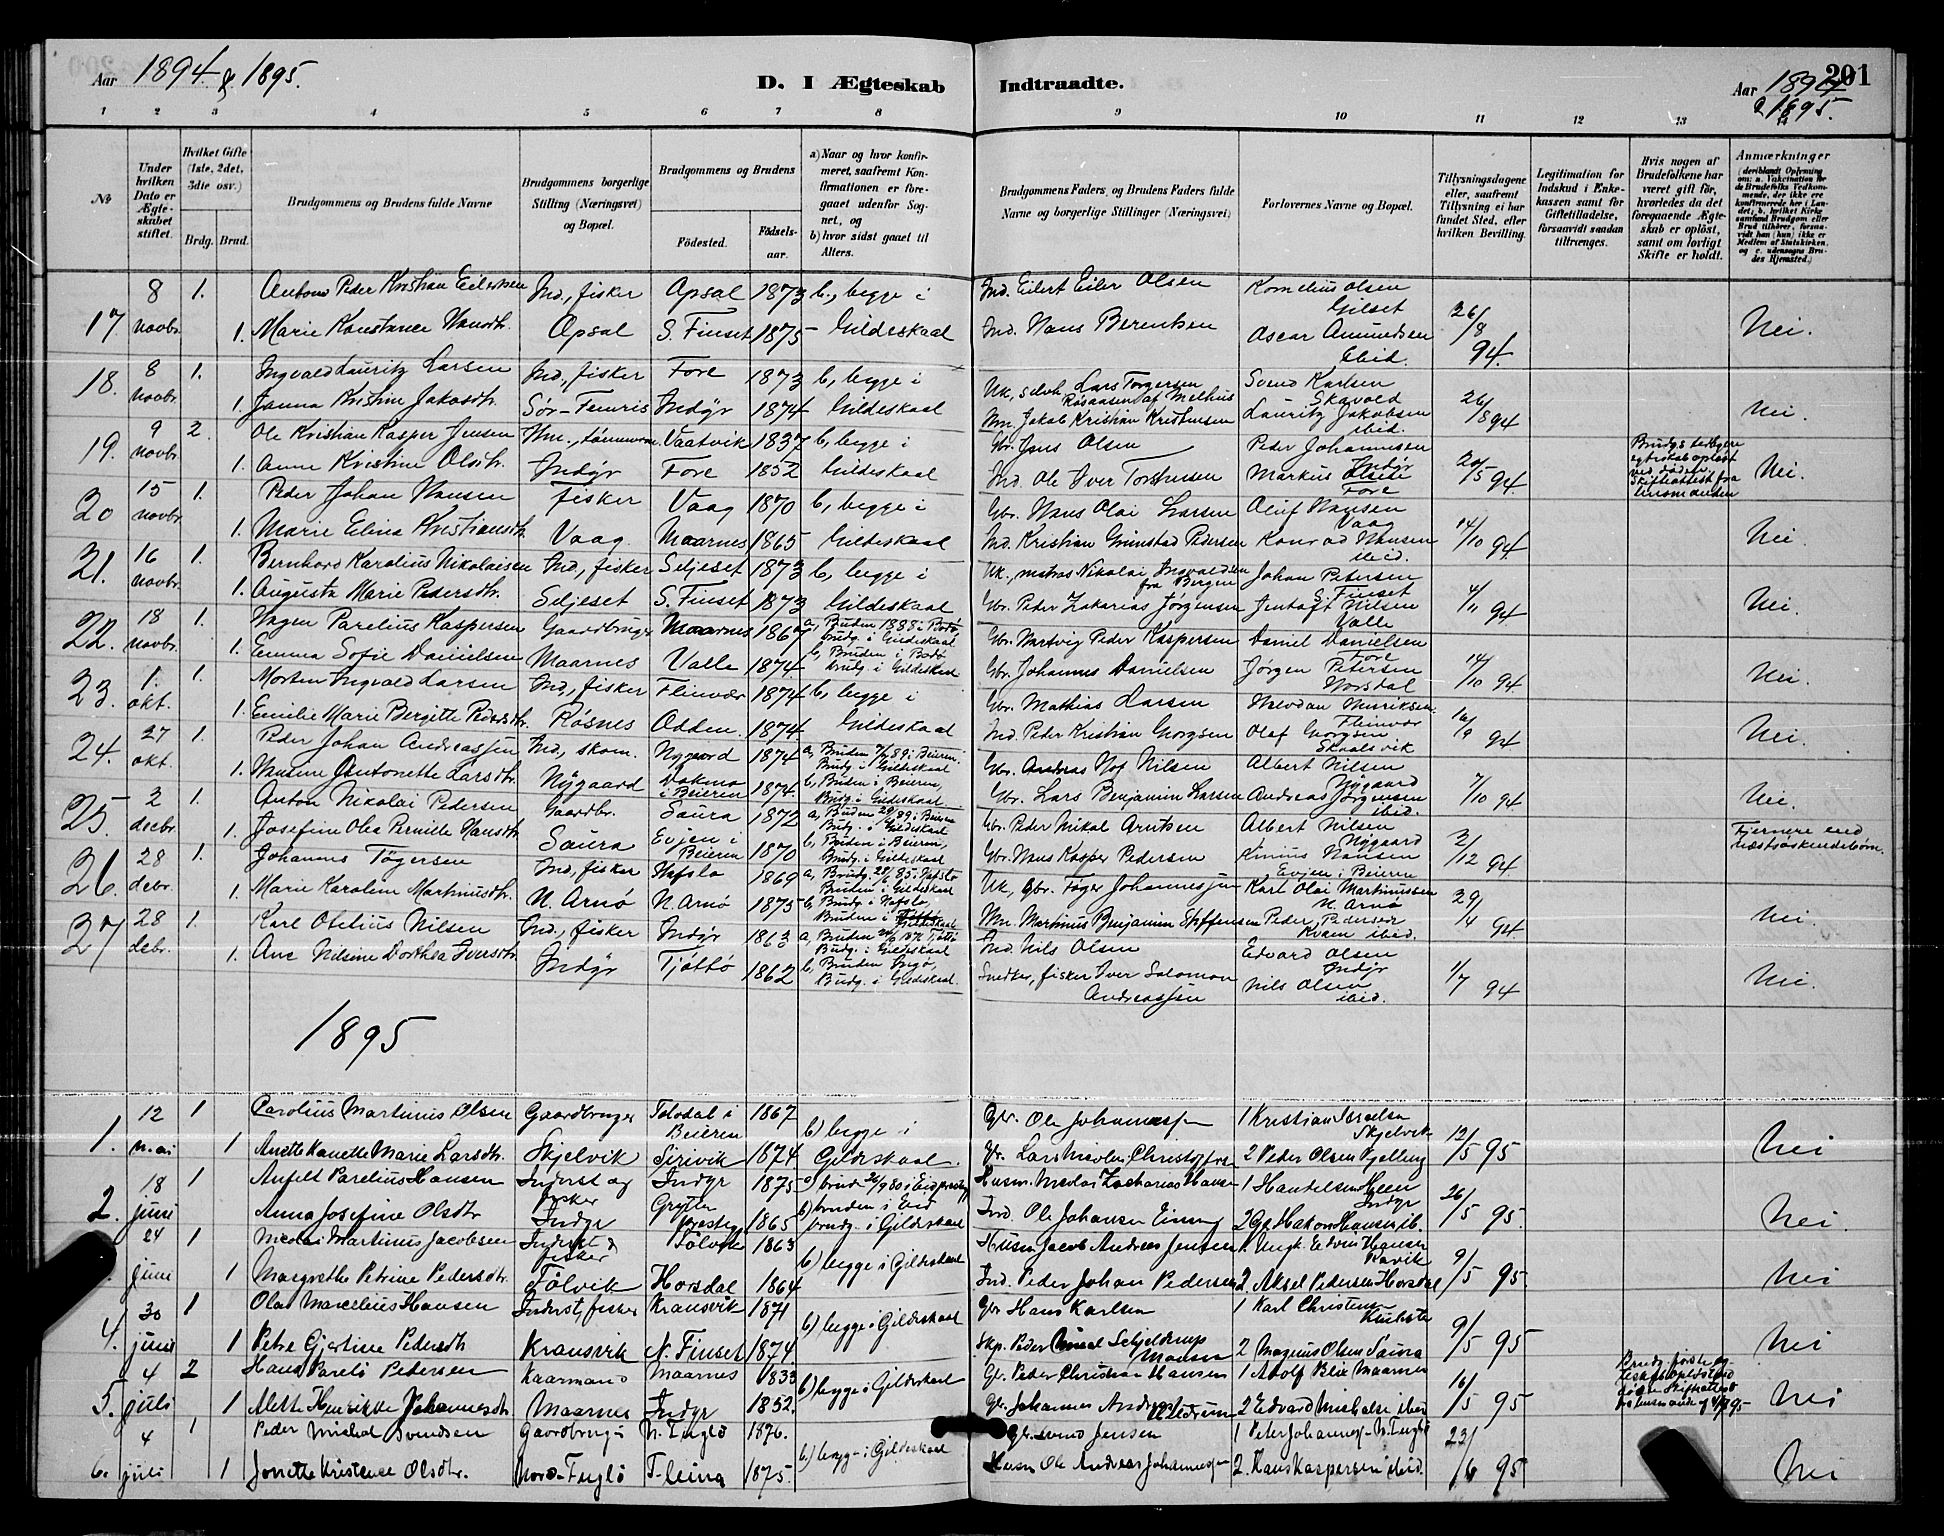 Aar 1894 & 1895.
D. I Ægteskab Indtraadte.
Aar 1894 & 1895.
201
1 2 3 4 5 6 7 8 9 10 11 12 13
№
Under hvilken Dato er Ægteskabet stiftet.
Hvilket Gifte (1ste, 2det, 3die osv.)
Brdg. Brud.
Brudgommens og Brudens fulde Navne
Brudgommens borgerlige Stilling (Næringsvei) og Bopæl.
Brudgommens og Brudens
Fødested. Fødselsaar.
a) Naar og hvor konfirmeret, saafremt Konfirmationen er foregaaet udenfor Sognet, og
b) hvor sidst gaaet til Alters.
Brudgommens Faders, og Brudens Faders fulde Navne og borgerlige Stillinger (Næringsvei)
Forlovernes Navne og Bopæl.
Tillysningsdagene eller, saafremt Tillysning ei har fundet Sted, efter hvilken Bevilling.
Legitimation for Indskud i Enkekassen samt for Giftetilladelse, forsaavidt saadan tiltrænges.
Hvis nogen af Brudefolkene har været gift før, hvorledes da det foregaaende Ægteskab er opløst, samt om lovligt Skifte er holdt.
Anmærkninger
17. 8 novbr. 1. Anton Peder Kristian Eilertsen Ind., fisker Opsal 1873 b, begge i Ind. Eilert Eiler Olsen Kornelius Olsen Gilset 26/8 94. Nei.
1. Marie Konstance Hansdtr. Opsal S. Finset 1875 Gildeskaal Ind. Hans Berentsen Oscar Amundsen ibid.
18. 8 novbr. 1. Ingvald Lauritz Larsen Ind., fisker Fore 1873 b, begge i Lars Torgersen Svend Karlsen Skavold 26/8 94 Nei.
1. Janna Kristine Jakobdtr. Sør-Femris Indyr 1874 Gildeskaal Jakob Kristian Kristensen Lauritz Jakobsen ibid.
19. 9 novbr. 2. Ole Kristian Kasper Jensen Vaatvik 1837 b, begge i Gbr. Jens Olsen Peder Johannesen Indyr 20/5 94. Nei.
1. Anne Kristine Olsdtr. Indyr Fore 1852 Gildeskaal Ind. Ole Iver Torstensen Markus Olsen Fore
20. 15 novbr. 1. Peder Johan Hansen Fisker Vaag 1870 b, begge i Gbr. Hans Olai Larsen Oluf Hansen Vaag 14/10 94. Nei.
1. Marie Elina Kristiansdtr. Vaag. Maarnes 1865 Gildeskaal Ind. Kristian Grimstad Pedersen Konrad Hansen ibid.
21. 16 novbr. 1. Bernhard Karolius Nikolaisen Ind., fisker Seljeset 1873 b, begge i Uk., matros Nikolai Ingvaldsen fra Bergen Johan Petersen S. Finset 4/11 94. Nei.
1. Augusta Marie Pedersdtr. Seljeset S. Finset 1873 Gildeskaal Gbr. Peder Zakarias Jørgensen Jentoft Nilsen Valle
22. 18 novbr. 1. Hagen Parelius Kaspersen Gaardbruger Maarnes 1867 a, Bruden 1888 i Bodø brudg. i Gildeskaal Gbr. Hartvig Peder Kaspersen Daniel Danielsen Fore 14/10 94 Nei.
1. Emma Sofie Danielsen Maarnes Valle 1874 b, Bruden i Bodø brudg. i Gildeskaal Gbr. Johannes Danielsen Jørgen Petersen Horsdal
23. 1. okt. 1. Morten Ingvald Larsen Ind., fisker Fleinvær 1874 b, begge i Gbr. Mathias Larsen Theodor Henriksen. Fleinvær 16/9 94 Nei.
1. Emilie Marie Bergitte Pedersdtr. Røsnes Odden. 1874 Gildeskaal Ind. Peder Kristian Georgsen Olaf Georgsen Skaalsvik
24. 27 okt. 1. Peder Johan Andreassen Ind., skom. Nygaard 1874 a, Bruden 7/7 89 i Beieren. Brudg. i Gildeskaal Gbr. Andreas Hof Nilsen Albert Nilsen Nygaard 7/10 94 Nei.
1. Antonette Larsdtr. Nygaard i Beieren 1874. b, Bruden i Beieren, Brudg. i Gildeskaal Gbr. Lars Benjamin Larsen Andreas Jørgensen ibid.
25. 2 decbr. 1. Anton Nikolai Pedersen Gaardbr. Saura 1872 Gbr. Peder Nikal Arntsen Albert Nilsen Nygaard 2/12 94. Fjernere end næstsøskendebørn.
1. Josefine Olea Pernille Hansdtr. Saura Evjen i Beieren 1870 b, Bruden i Beieren, Brudg. i Gildeskaal Gbr. Hans Kasper Pedersen Hansen Evjen i Beieren
26. 28 debr. 1. Johannes Tøgersen Ind., fisker Hafslo 1869 Uk, Gbr. Tøger Johannessen Karl Olai Martinussen N. Arnø 29/4 94. Nei.
1. Marie Karoline Martinusdtr. N. Arnø N. Arnø 1875 Martinus Benjamin Steffensen Peder Pedersen Kvam ibid.
27. 28 debr. 1. Karl Otelius Nilsen Ind., fisker Indyr 1863 Ind. Nils Olsen Edvard Olsen Indyr 1/7 94 Nei.
1. Ane Nilsine Dorthea Iversdtr. Indyr Tjøttø 1862 Brudg. i Gildeskaal. Snedker, fisker Iver Salomon Andreassen Nils Olsen ibid.
1895
1. 12 mai 1 Parolius Martinus Olsen Gaardbruger Tolvdal i Beieren 1867 b) begge i Gbr. Ole Johannessen 1 Kristian Israelsen Skjelvik 12/5 95 Nei
1 Anette Kanette Marie Larsdtr. Skjelvik Sirivik 1874 Gildeskaal. Gbr. Lars Nicolai Christoffersen 2 Peder Olsen Kjelling
2. 18 juni 1 Anfelt Parelius Hansen Inderst og fisker Indyr 1875 Husm. Nicolai Zacharias Hansen 26/5 95. Nei.
Anna Josefine Olsdtr Indyr 1865 b) bruden i Eid brudg. i Gildeskaal Ind. Ole Johansen 2 Gbr Hakon Hansen ib.
24 juni 1 Nicolai Martinus Jacobsen Inderst & fisker Tolvik 1863 b) begge i Gildeskaal Husm Jacob Andreas Jensen 1. Ungk. Edvin Hansen 9/5 95 Nei
1 Margrethe Petrine Pedersdtr. Tolvik Horsdal 1864 Ind. Peder Johan Pedersen 2. Aksel Pedersen Horsdal
4. 30 juni 1 Olai Marcelius Hansen Inderst, fisker Kransvik 1871 b) begge i Gildeskaal Gbr Hans Karlsen 1 Karl Christensen 9/5 95 Nei
1 Petra Gjertine Pedersdtr Kransvik N. Finset 1874. Skp. Peder Schjeldrup Monsen 2 Magnus Olsen Saura
5. 4 juli 2 Hans Pedersen Kaarmand Maarnes 1833 b) begge i Gildeskaal Gbr. Peder Christian Hansen 1 Adolf Blix Maarnes 16/5 95 Nei
1 Alette Henrikke Johannesdtr Maarnes Indyr 1852. Gbr. Johannes 2 Edvard Michalsen ibid
6. 4 juli 1 Peder Michal Svendsen Gaardbruger N. Fuglø 1876. b) begge i Gildeskaal Gbr. Svend Jensen 1 Peter Johannessen N. Fuglø 23/6 95 Nei
1 Jonette Kristence Olsdtr. Nord-Fuglø Fleina 1875. Husm Ole Andreas Johannessen 2. Hans Kaspersen ibid.